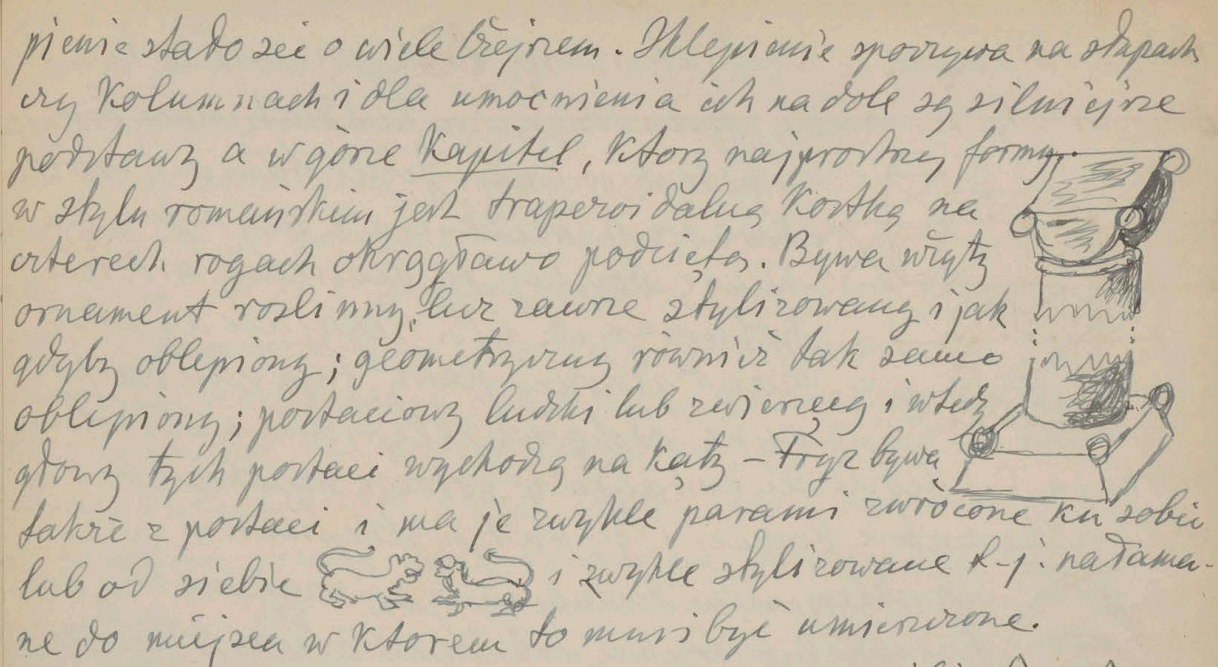 pienie stało się o wiele lżejszem. Sklepienie spoczywa na słupach
czy kolumnach i dla umocnienia ich na dole są silniejsze
podstawy a w górze Kapitel, który najprostszej formy
w stylu romańskim jest trapezoidalną kostką na
czterech rogach okrągławo podciętą. Bywa użyty
ornament roślinny, lecz zawsze stylizowany i jak
gdyby oblepiony; geometryczny również tak samo
oblepiony; postaciowy ludzki lub zwierzęcy i wtedy
głowy tych postaci wychodzą na kąty – Fryz bywa
także z postaci i ma je zwykle parami zwrócone ku sobie
lub od siebie i zwykle stylizowane t.j. nałama-
ne do miejsca w którem to musi być umieszczone.